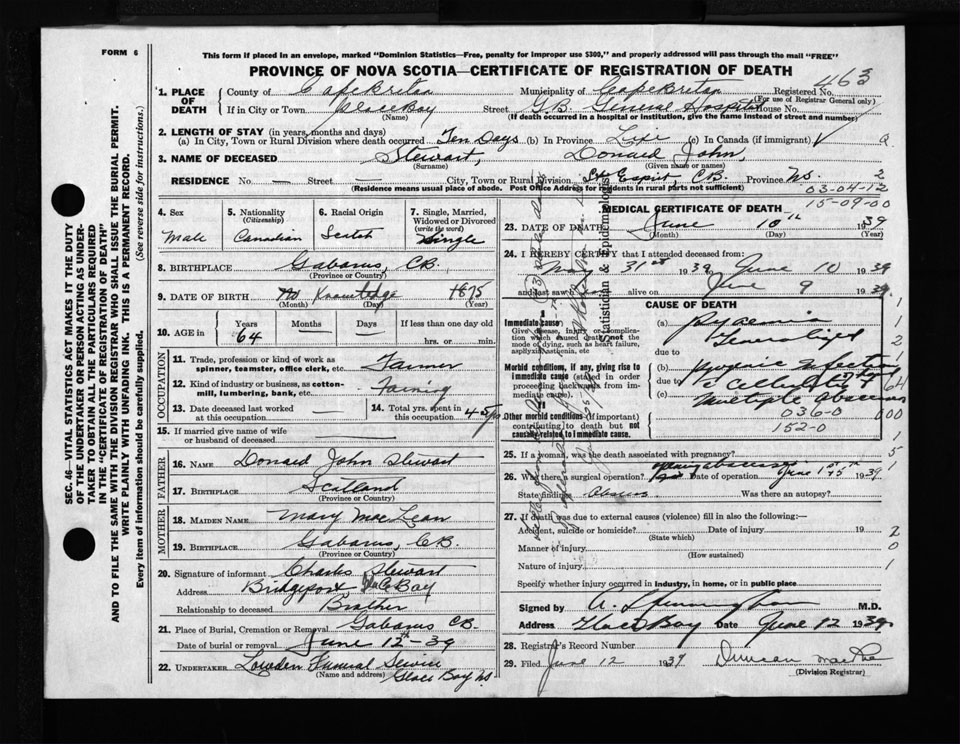 FORM 6
This form if placed in an envelope, marked "Dominion Statistics—Free, penalty for improper use $300," and properly addressed will pass through the mail "FREE"
PROVINCE OF NOVA SCOTIA—CERTIFICATE OF REGISTRATION OF DEATH
463
1. PLACE OF DEATH
County of Cape Breton Municipality of Cape Breton Registered No.
(For use of Registrar General only)
If in City or Town Glace Bay Street G.B. General Hospital House No.
(Name) (If death occurred in a hospital or institution, give the name instead of street and number)
2. LENGTH OF STAY (in years, months and days)
(a) In City, Town or Rural Division where death occurred Ten Days (b) In Province Life (c) In Canada (if immigrant)
3. NAME OF DECEASED Stewart, Donald John,
(Surname) (Given name or names)
RESIDENCE No. — Street — City, Town or Rural Division Esprit C.B. Province N.S. 2
(Residence means usual place of abode. Post Office Address for residents in rural parts not sufficient)
03-04-12
15-09-00
4. Sex Male
5. Nationality (Citizenship) Canadian
6. Racial Origin Scotch
7. Single, Married, Widowed or Divorced (write the word) Single
8. BIRTHPLACE Gabarus, C.B.
(Province or County)
9. DATE OF BIRTH No Knowledge 1875
(Month) (Day) (Year)
10. AGE in Years 64 Months — Days — If less than one day hrs. or min.
OCCUPATION
11. Trade, profession or kind of work as spinner, teamster, office clerk, etc. Farmer
12. Kind of industry or business, as cotton-mill, lumbering, bank, etc. Farming
13. Date deceased last worked at this occupation —
14. Total yrs. spent in this occupation 45 yrs
15. If married give name of wife or husband of deceased
FATHER
16. NAME Donald John Stewart
17. BIRTHPLACE Scotland
(Province or Country)
MOTHER
18. MAIDEN NAME Mary MacLean
19. BIRTHPLACE Gabarus, C.B.
(Province or Country)
20. Signature of informant Charles Stewart
Address Bridgeport, Gl. Bay
Relationship to deceased Brother
21. Place of Burial, Cremation or Removal Gabarus C.B.
Date of burial or removal June 12th-39
22. UNDERTAKER Lowden Funeral Service
(Name and address) Glace Bay NS
MEDICAL CERTIFICATE OF DEATH
23. DATE OF DEATH June 10th 1939
(Month) (Day) (Year)
24. I HEREBY CERTIFY that I attended deceased from:
May 31st 1939 to June 10 1939
and last saw alive on June 9 1939
CAUSE OF DEATH
Immediate cause
Give disease, injury or complication which caused death, not the mode of dying, such as heart failure, asphyxia, asthenia, etc.
(a) Pyaemia Generalized
due to
Morbid conditions, if any, giving rise to immediate cause (stated in order proceeding backwards from immediate cause).
(b) Pyogenic Infection
due to Cellulitis
(c) Multiple Abscesses
Other morbid conditions (if important) contributing to death but not causally related to immediate cause.
036-0
152-0
25. If a woman, was the death associated with pregnancy?
26. Was there a surgical operation? opening abscesses Date of operation June 1939
State findings Abscess Was there an autopsy?
27. If death was due to external causes (violence) fill in also the following:—
Accident, suicide or homicide? Date of injury 19
(State which)
Manner of injury
(How sustained)
Nature of injury
Specify whether injury occurred in industry, in home, or in public place
Signed by M.D.
Address Glace Bay Date June 12 1939
28. Registrar's Record Number
29. Filed June 12 1939 Duncan MacRae
(Division Registrar)
SEC. 46—VITAL STATISTICS ACT MAKES IT THE DUTY OF THE UNDERTAKER OR PERSON ACTING AS UNDERTAKER TO OBTAIN ALL THE PARTICULARS REQUIRED IN THE "CERTIFICATE OF REGISTRATION OF DEATH" AND TO FILE THE SAME WITH THE DIVISION REGISTRAR WHO SHALL ISSUE THE BURIAL PERMIT.
WRITE PLAINLY WITH UNFADING INK. THIS IS A PERMANENT RECORD.
Every item of information should be carefully supplied. (See reverse side for instructions.)
Statistician Epidemiologist